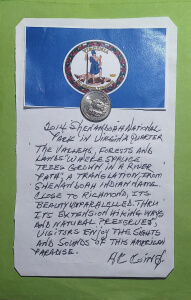 2014 Shenandoah National
Park in Virginia Quarter
The valleys, forests and
lands where spruce
trees grown in a river
path, a translation, from
Shenandoah Indian name.
Close to Richmond, its
beauty unparalelled. Thru
its extension hiking ways
and natural preserves,
visitors enjoy the sights
and sounds of this American
paradise.